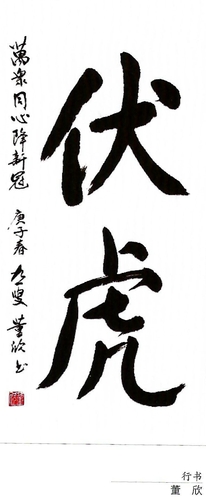 伏虎
萬衆同心降新冠 庚子春 左叟 董欣书
行书
董欣